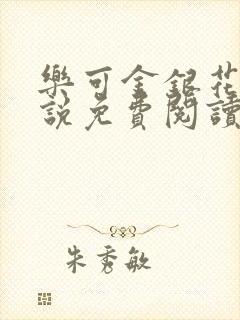 樂可金銀花
說免費閱讀
朱秀敏